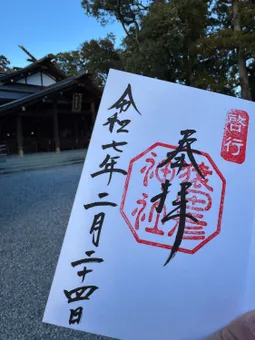 啓行
奉拝
猿田彦神社
令和七年二月二十四日